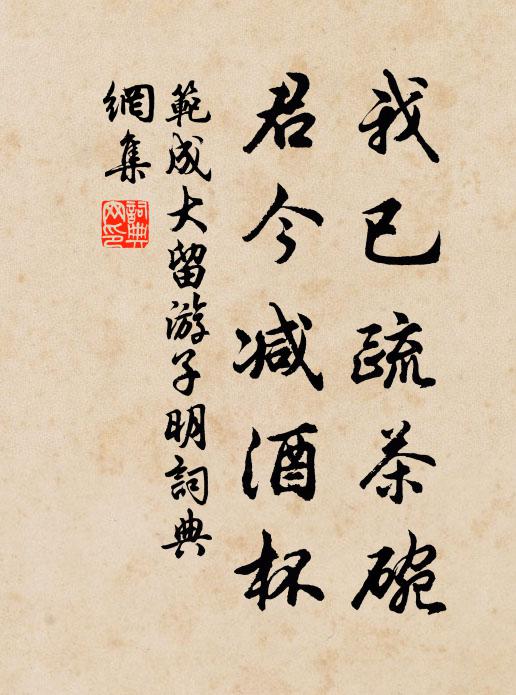 我已疏茶碗
君今减酒杯
範成大留游子明詞典
網集
詞典
网印